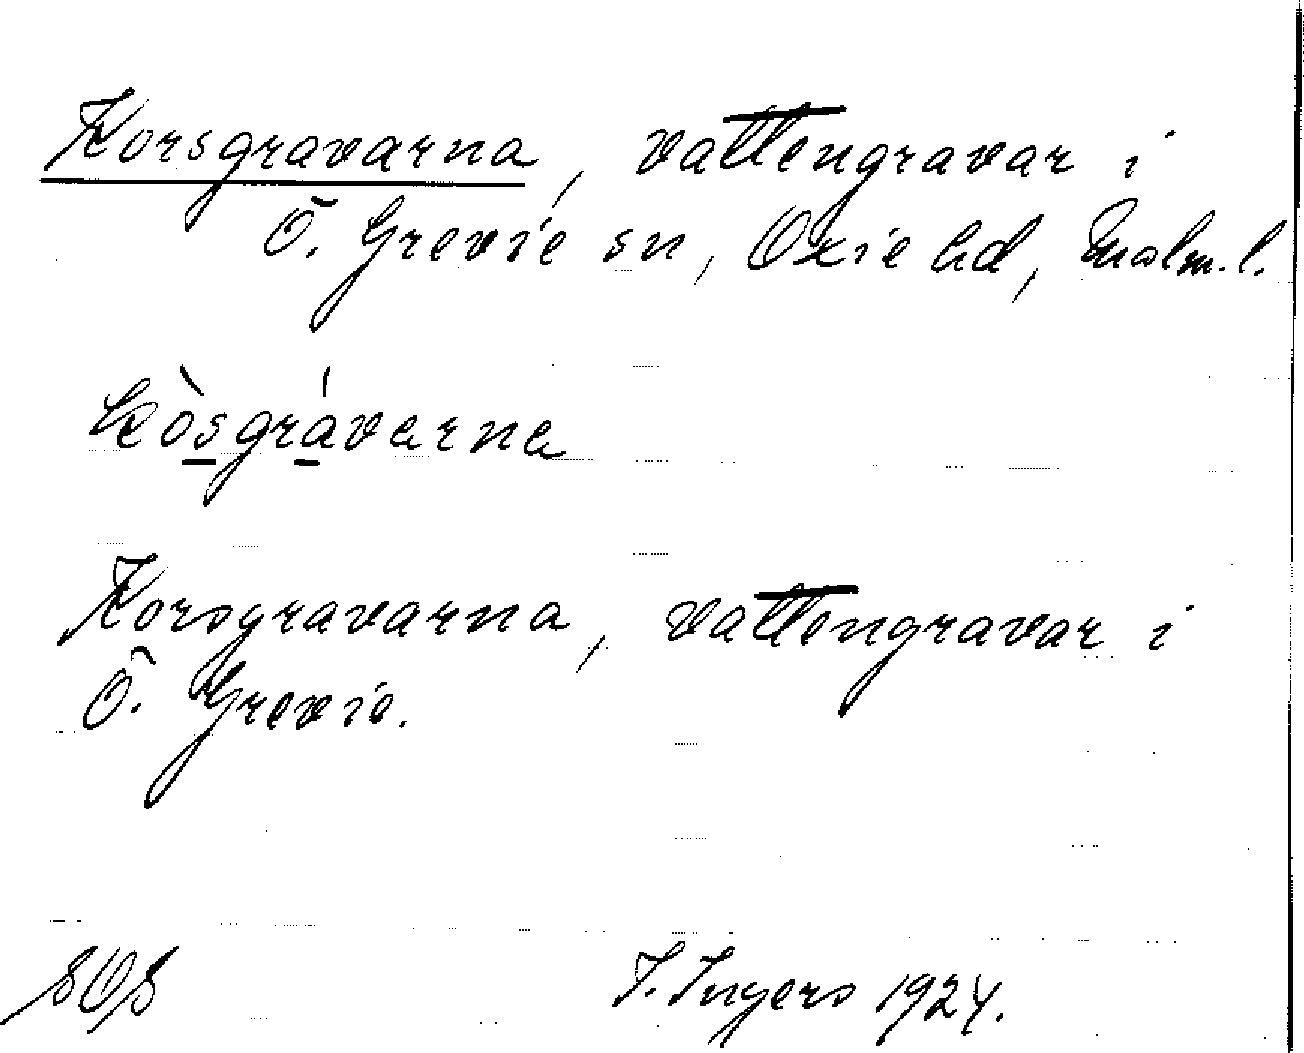 Korsgravarna, vattengravar i
Ö. Grevie sn, Oxie hd, Malm. l.
kòsgrávarna
Korsgravarna, vattengravar i
Ö. Grevie.
SOS I. Ingers 1924.